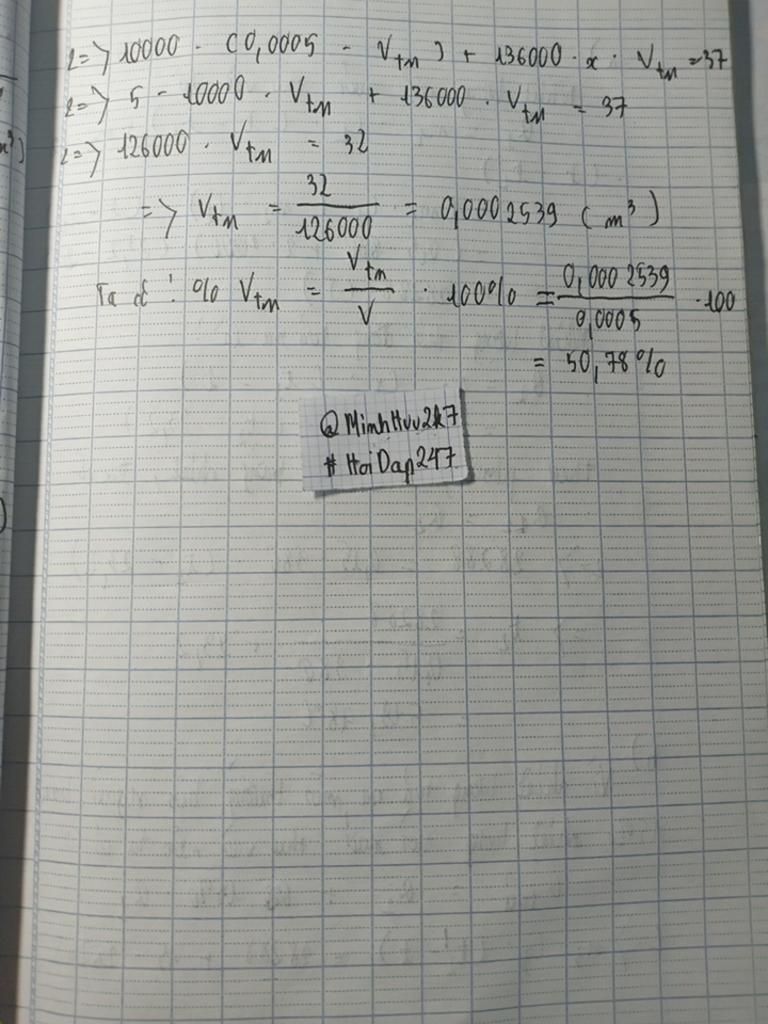 <=> 10000 . (0,0005 - Vtn) + 136000 . x . Vtn = 37
<=> 5 - 10000 . Vtn + 136000 . Vtn = 37
<=> 126000 . Vtn = 32
=> Vtn = 32/126000 = 0,0002539 (m³)
Ta có : % Vtn = Vtn/V . 100% = 0,0002539/0,0005 . 100
= 50,78%
@MinhHuu2k7
# HoiDap247